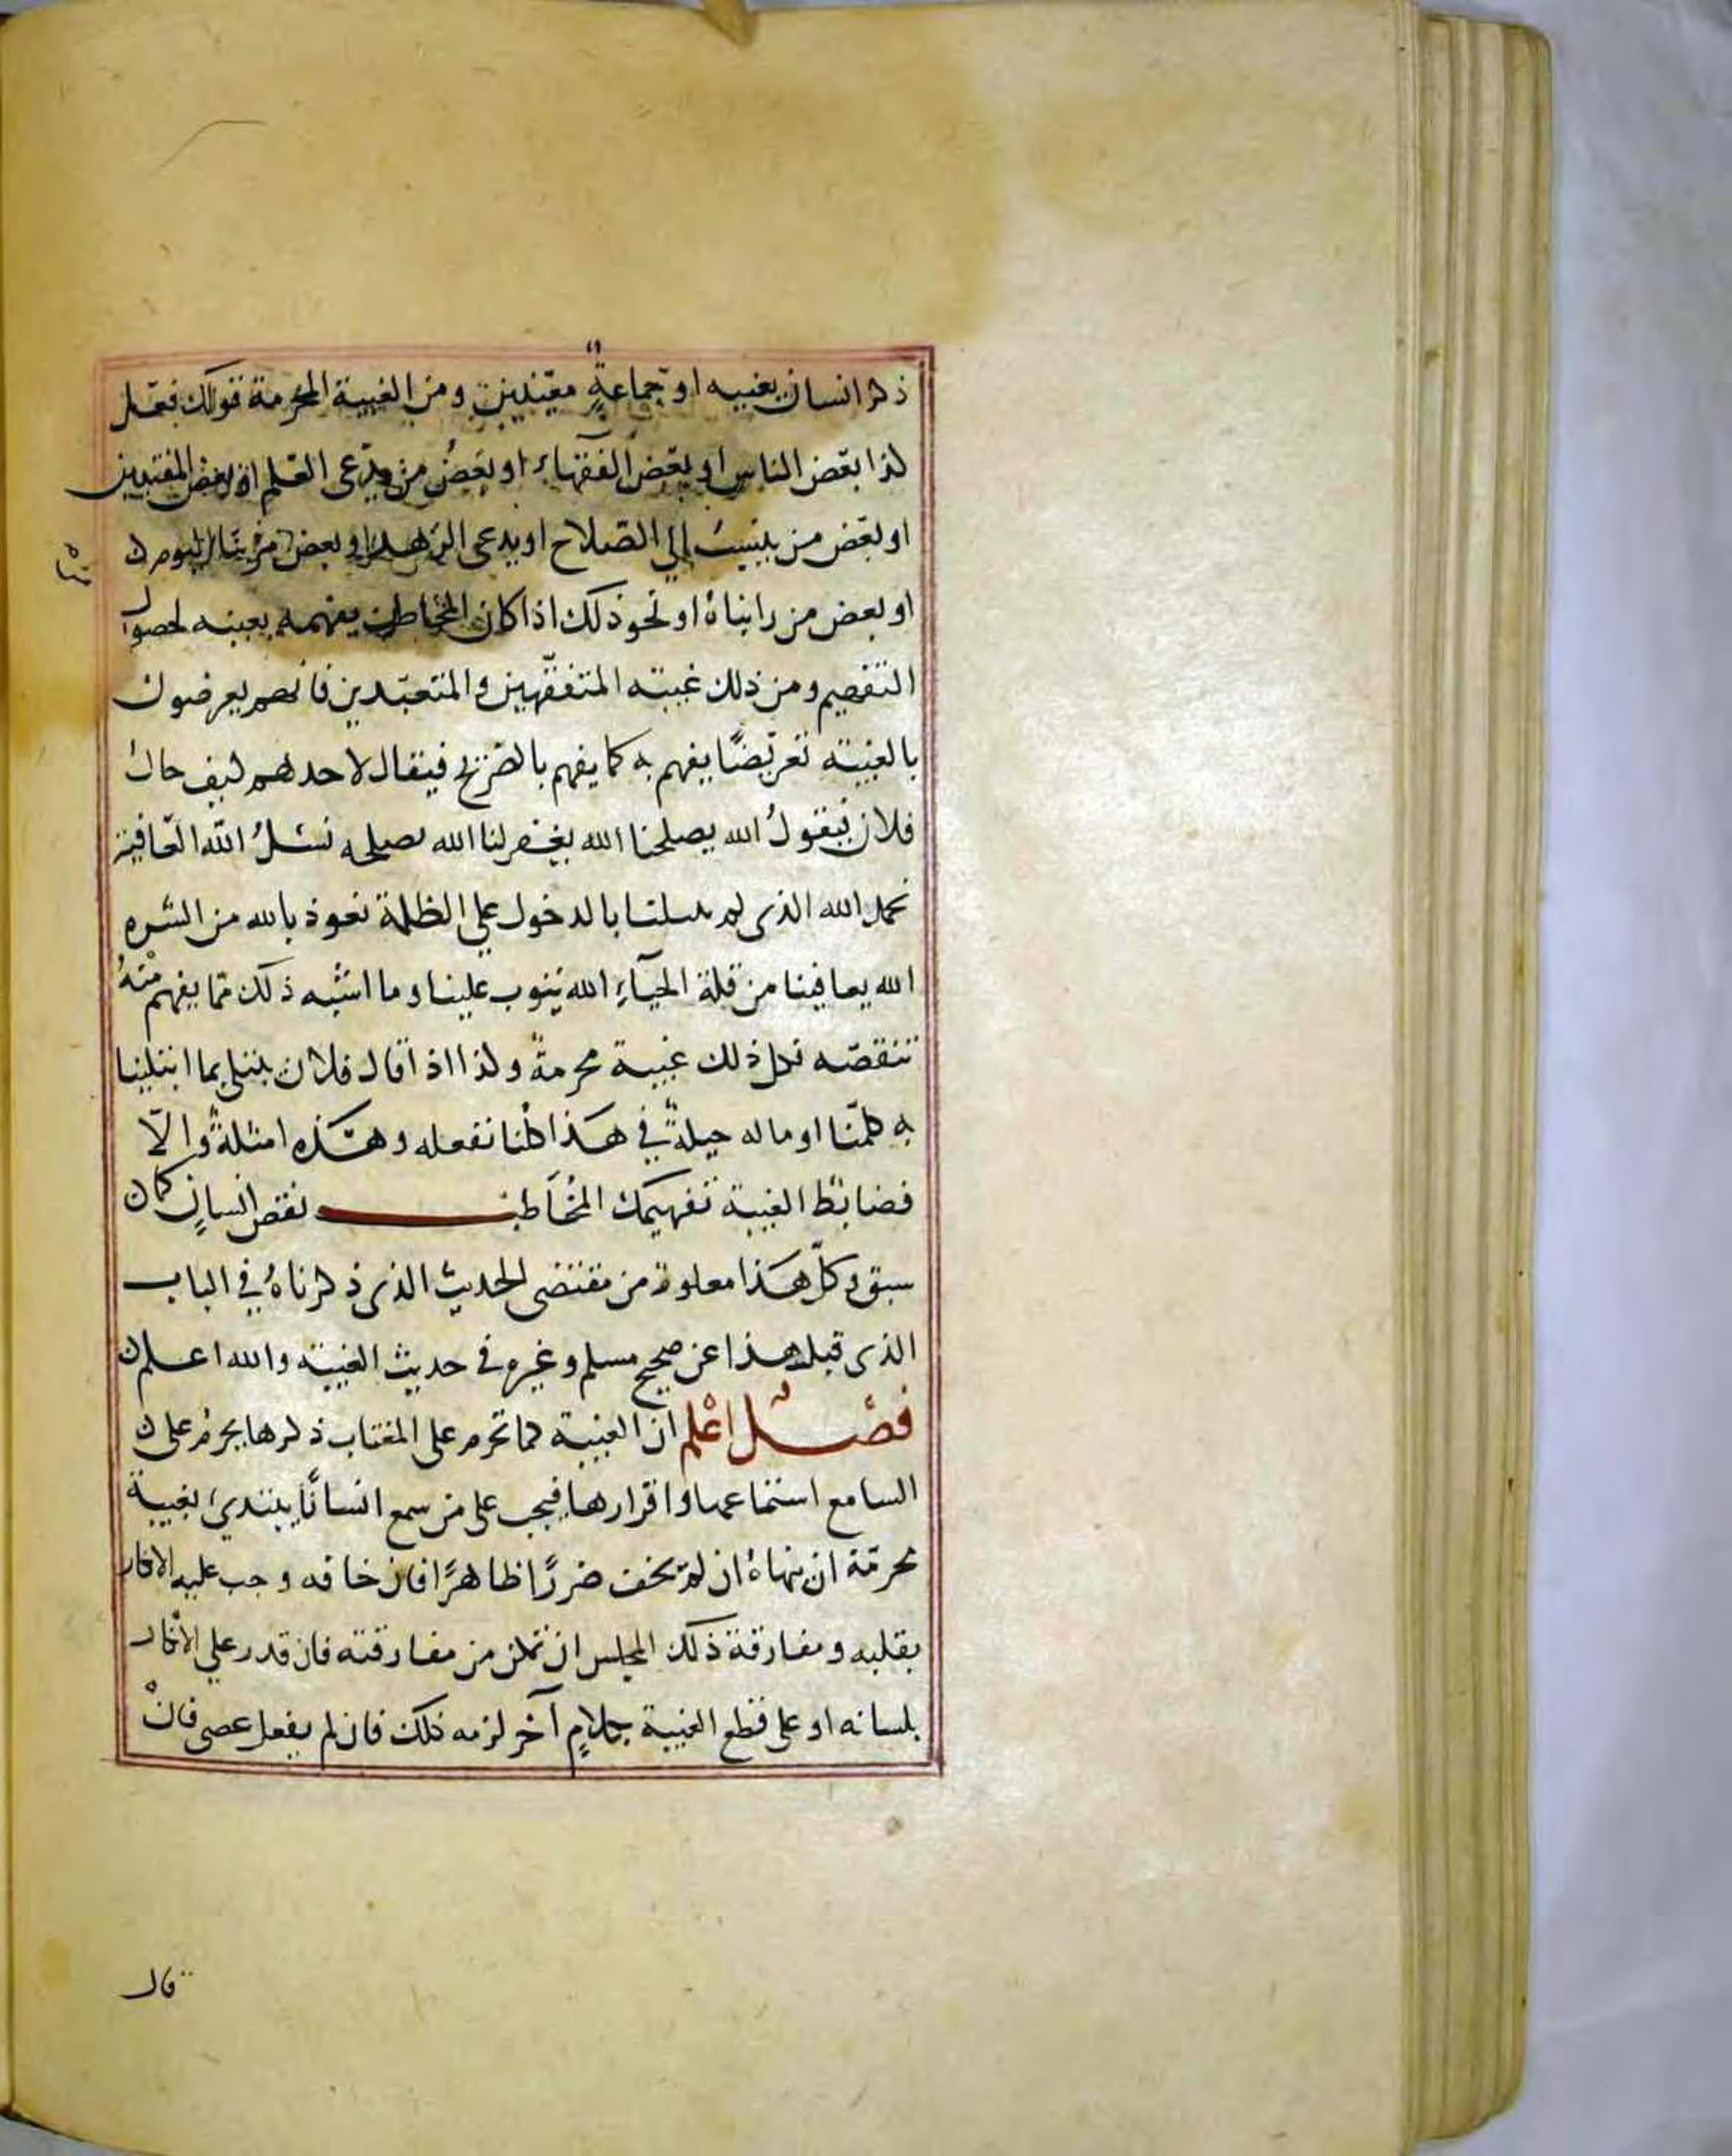 ذكر انسان بعينه او جماعةٍ معينين ومن الغيبة المحرمة قولك فعل
كذا بعض الناس او بعض الفقهاء او بعضُ من يدّعى العلم او بعض المفتيين
او بعض من ينسبُ الي الصّلاح او يدعى الزهد او بعض من يتا اليوم
او بعض من راىناهُ او نحو ذلك اذا كان المخاطب يفهمه بعينه لحصول
التفهيم ومن ذلك غيبته المتفقّهين والمتعبّدين فانهم يعرضون
بالغيبته تعريضًا يفهم به كما يفهم بالصّريح فيقال لاحدهم كيف حال
فلان فيقولُ الله يصلحنا الله يغفر لنا الله يصلحه نسئلُ الله العافية
نحمد الله الذى لم يبتلنا بالدخول علي الظلمة نعوذ بالله من الشره
الله يعافينا من قلة الحيآء الله يتوب علينا وما اشبه ذلك ممّا يفهم منهُ
تنقصّه فكل ذلك غيبة محرمةٌ وكذا اذا قال فلان يبتلى بما ابتلينا
به كلّنا او ماله حيلةٌ في هذا كلنا نفعله وهذه امثلةٌ والّا
فضابطُ الغيبة تفهيمك المخُاطَب نقص انسانٍ كمان
سبق وكلّ هذا معلوم من مقتضى الحديث الذى ذكرناهُ في الباب
الذى قبل هذا عن صحيح مسلم وغيره في حديث الغيبته والله اعلم
فصْــلٌ اعْلم ان الغيبة كما تحرم على المغتاب ذكرها يحرمُ على
السامع استماعها واقرارها فيجب على من سمع انسانًا يبتدئ بغيبة
محرمّة ان ينهاهُ ان لم يخف ضررًا ظاهرًا فان خافه وجب عليه الانكار
بقلبه ومفارقة ذلك المجلس ان تمكن من مفارقته فان قدر علي الانكار
بلسانه او على قطع الغيبة بكلامٍ آخر لزمه ذلك فان لم يفعل عصى فانْ
قال